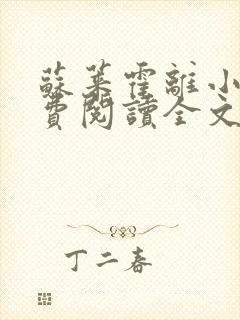 蘇茉霍離小
費閱讀全文
丁二春